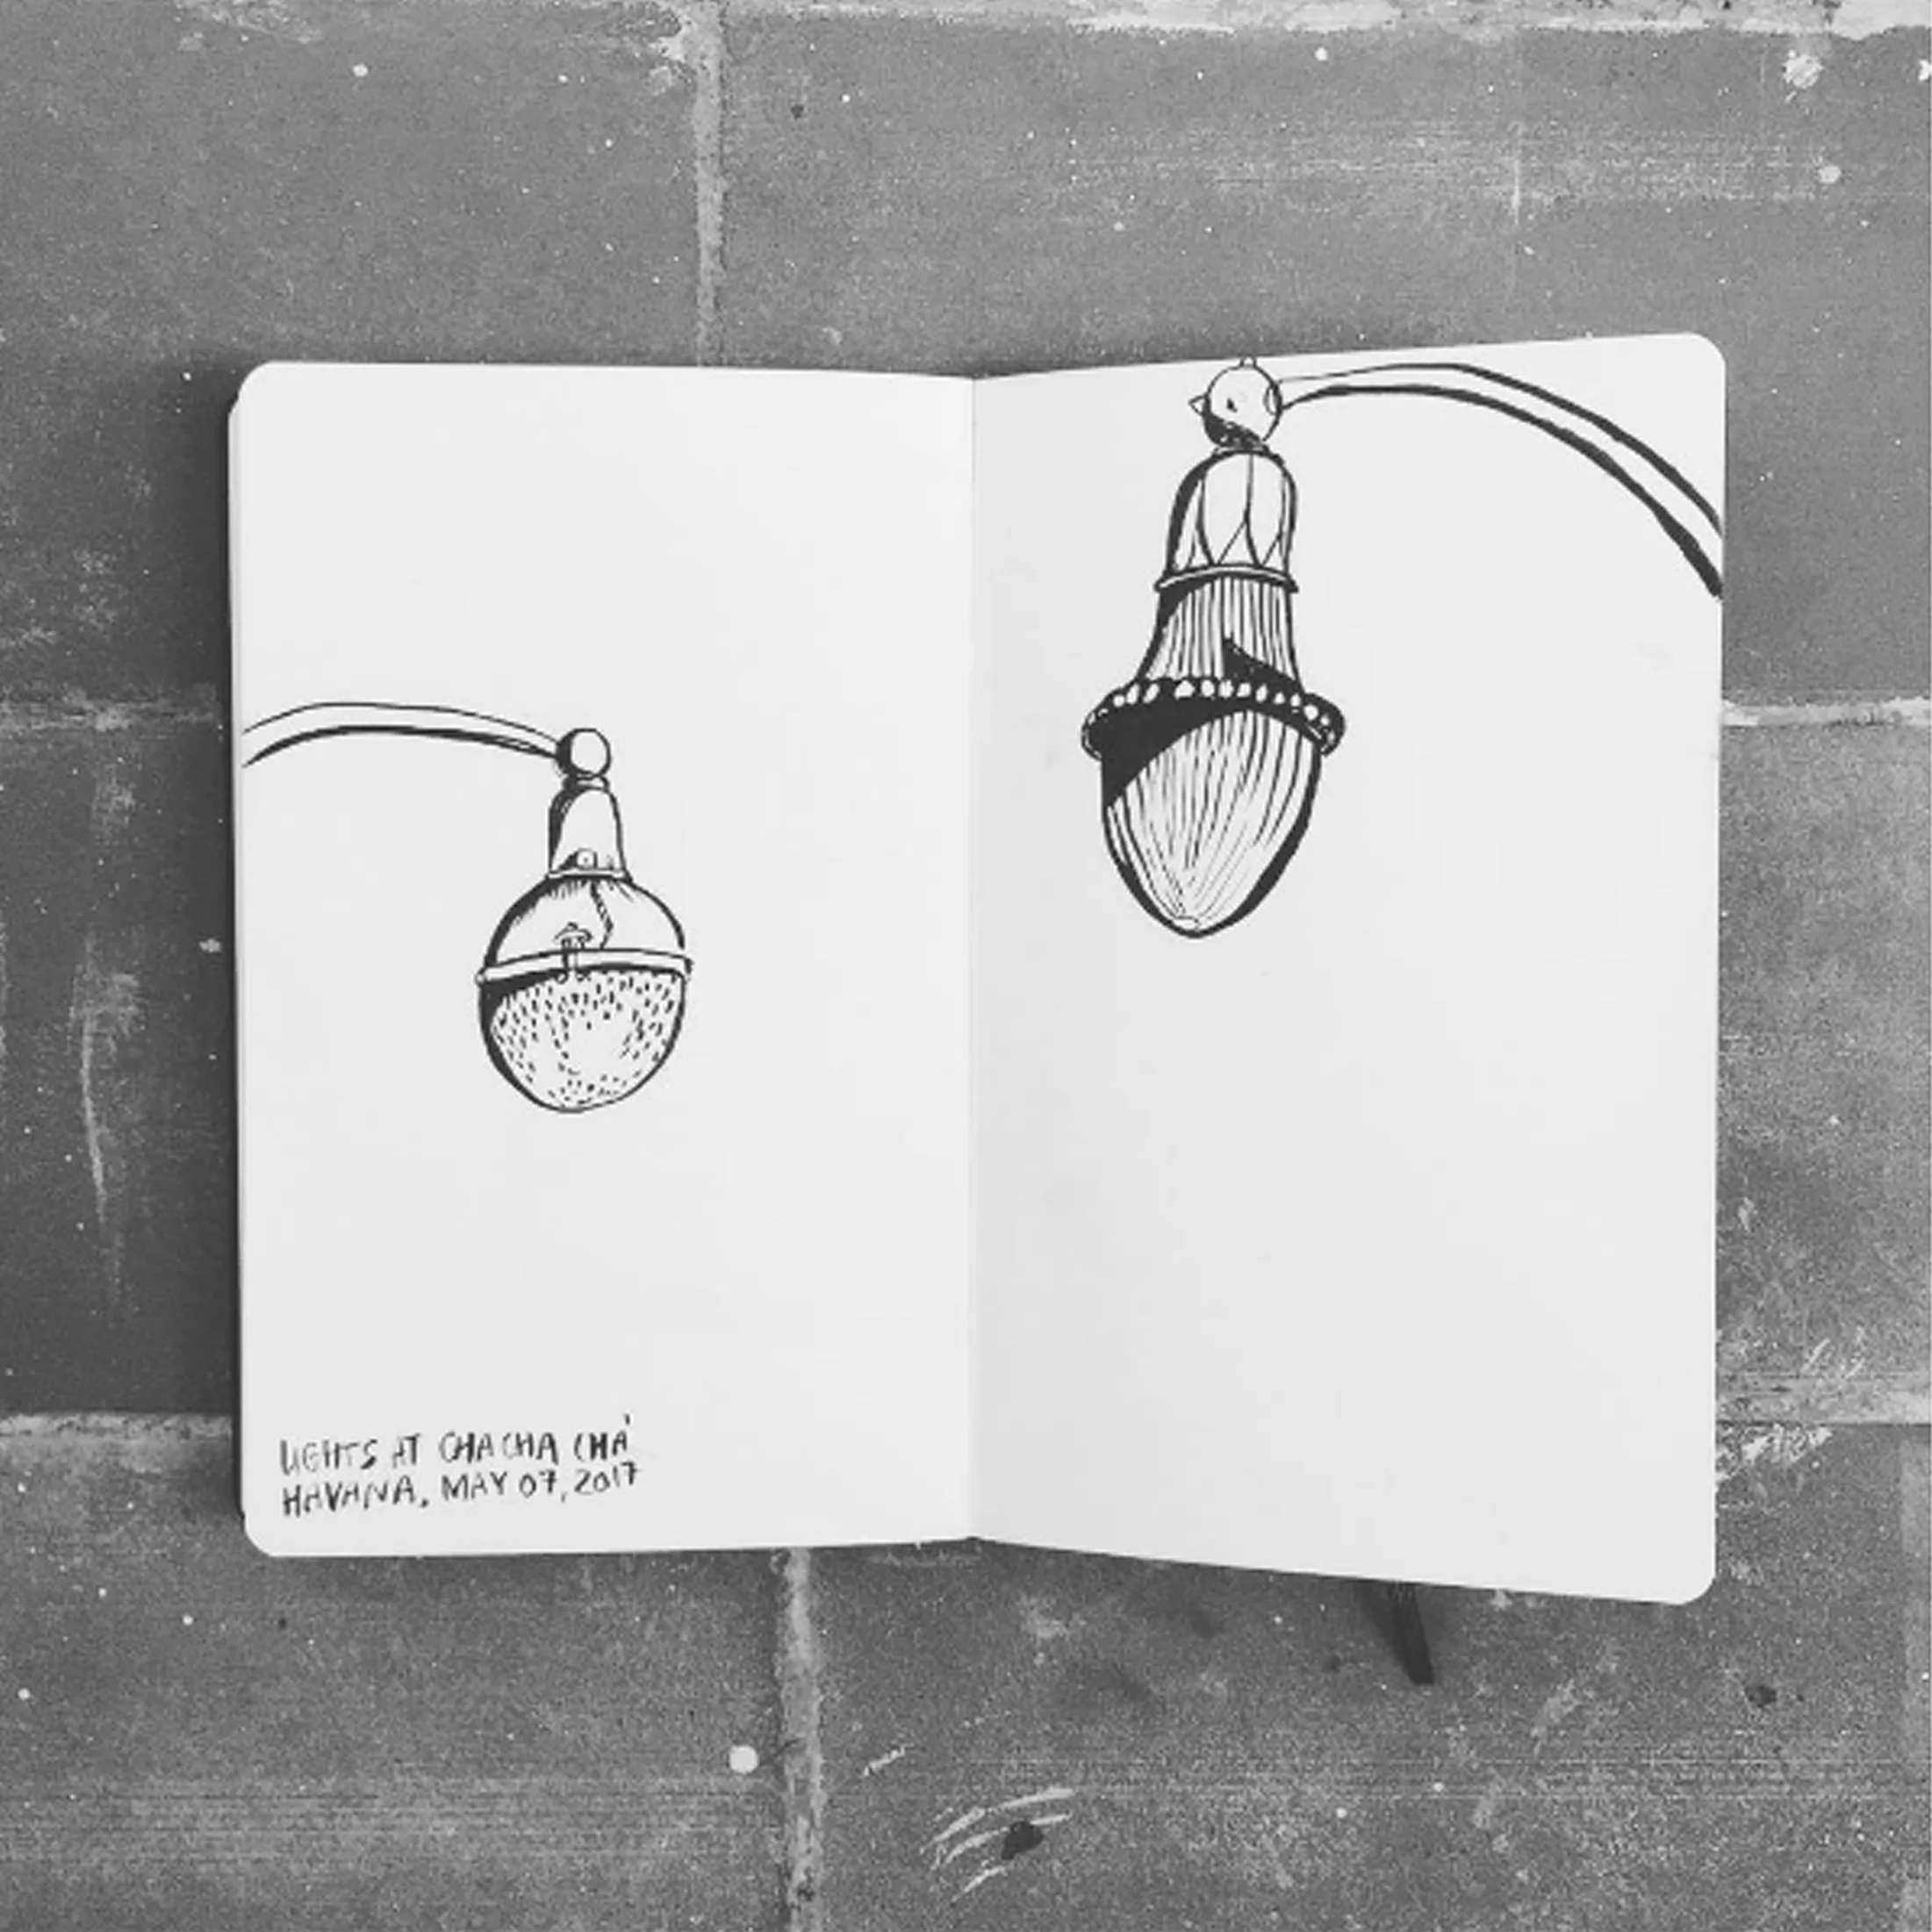 LIGHTS AT CHA CHA CHÁ
HAVANA, MAY 07, 2017